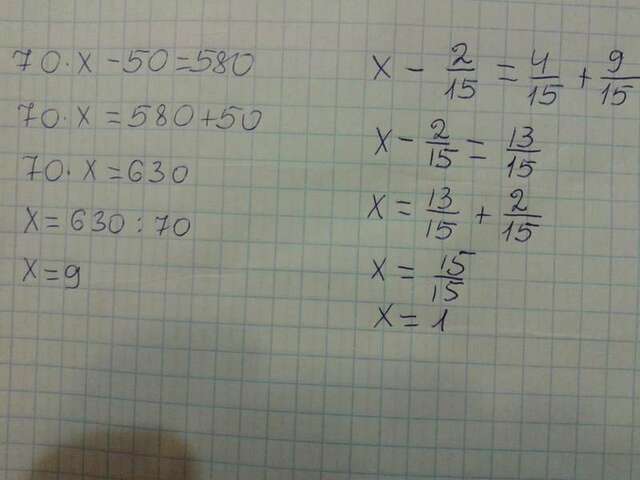 70·x-50=580
70·x=580+50
70·x=630
x=630:70
x=9
x - 2/15 = 4/15 + 9/15
x - 2/15 = 13/15
x = 13/15 + 2/15
x = 15/15
x = 1